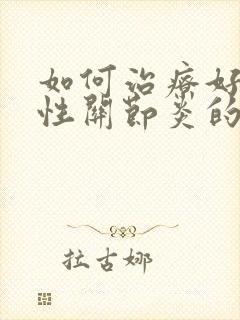 如何治療好
性關節炎的
拉古娜